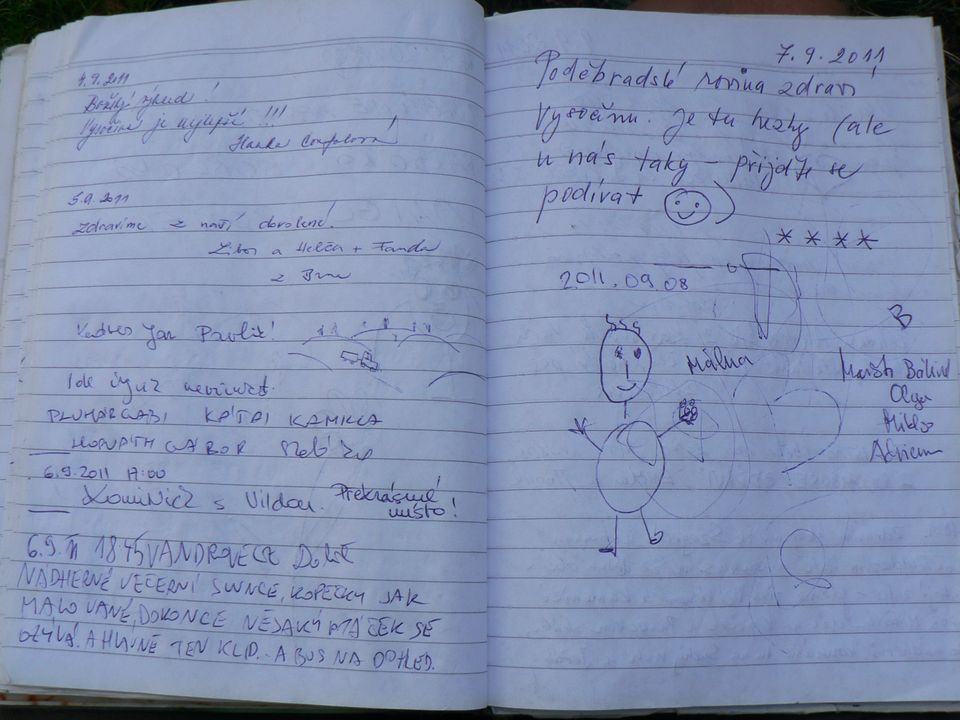 4.9.2011
Božský výhled!
Vysočina je nejlepší!!!
Hanka
5.9.2011
Zdravíme z naší dovolené!
Libor a Helča + Fanda
z Brna
Jan Pavlik!
Ide
KATAI KAMILLA
HORVÁTH GÁBOR
6.9.2011 17:00
s Vildou. Překrásné
místo!
6.9.11 18:45 VANDROVEC Z
NÁDHERNÉ VEČERNÍ SLUNCE, KOPEČKY JAK
MALOVANÉ, DOKONCE NĚJAKÝ PTÁČEK SE
OZÝVÁ. A HLAVNĚ TEN KLID.. A BUS NA DOHLED.
7.9.2011
Poděbradská rovina zdraví
Vysočinu. Je tu hezky (ale
u nás taky – přijďte se
podívat )
* * * *
2011.09.08
B
Málna
Bálint
Olga
Miklós
Adrienn